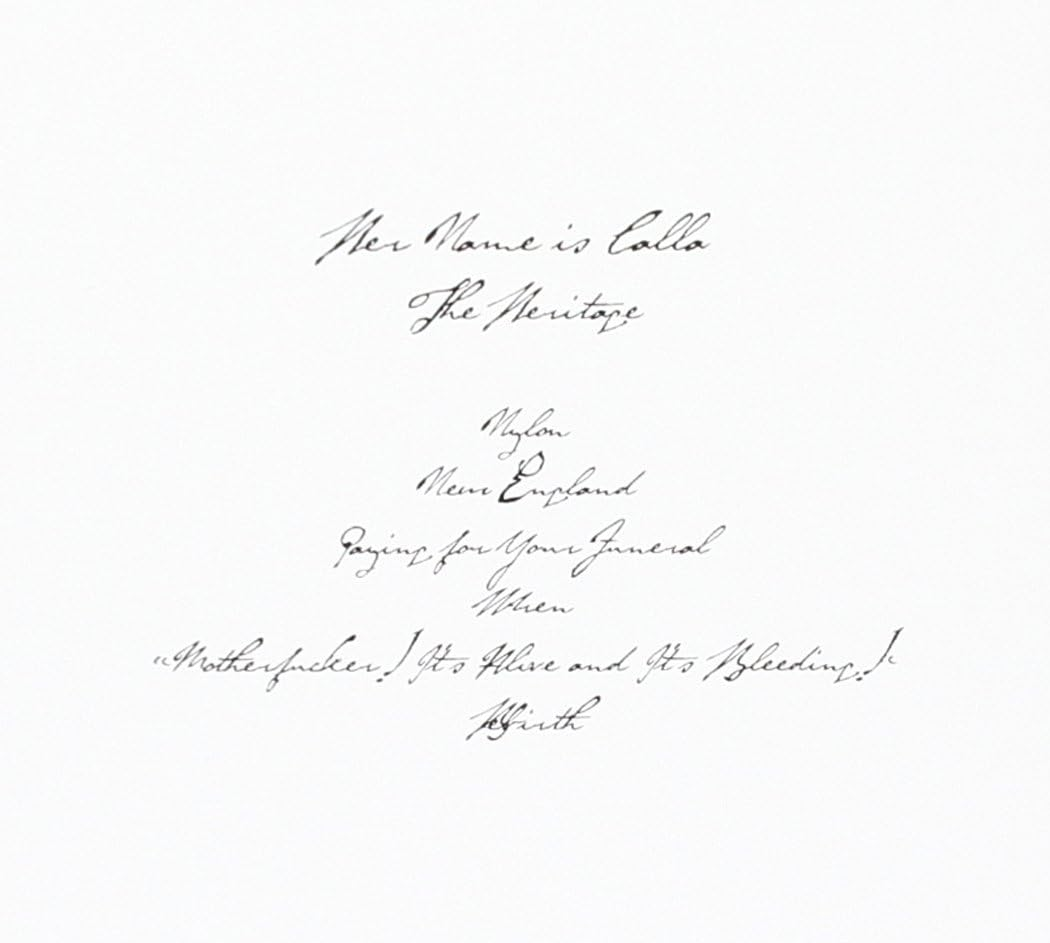 Her Name is Calla
The Heritage
Nylon
New England
Paying for Your Funeral
When
"Motherfucker! It's Alive and It's Bleeding!"
Rebirth